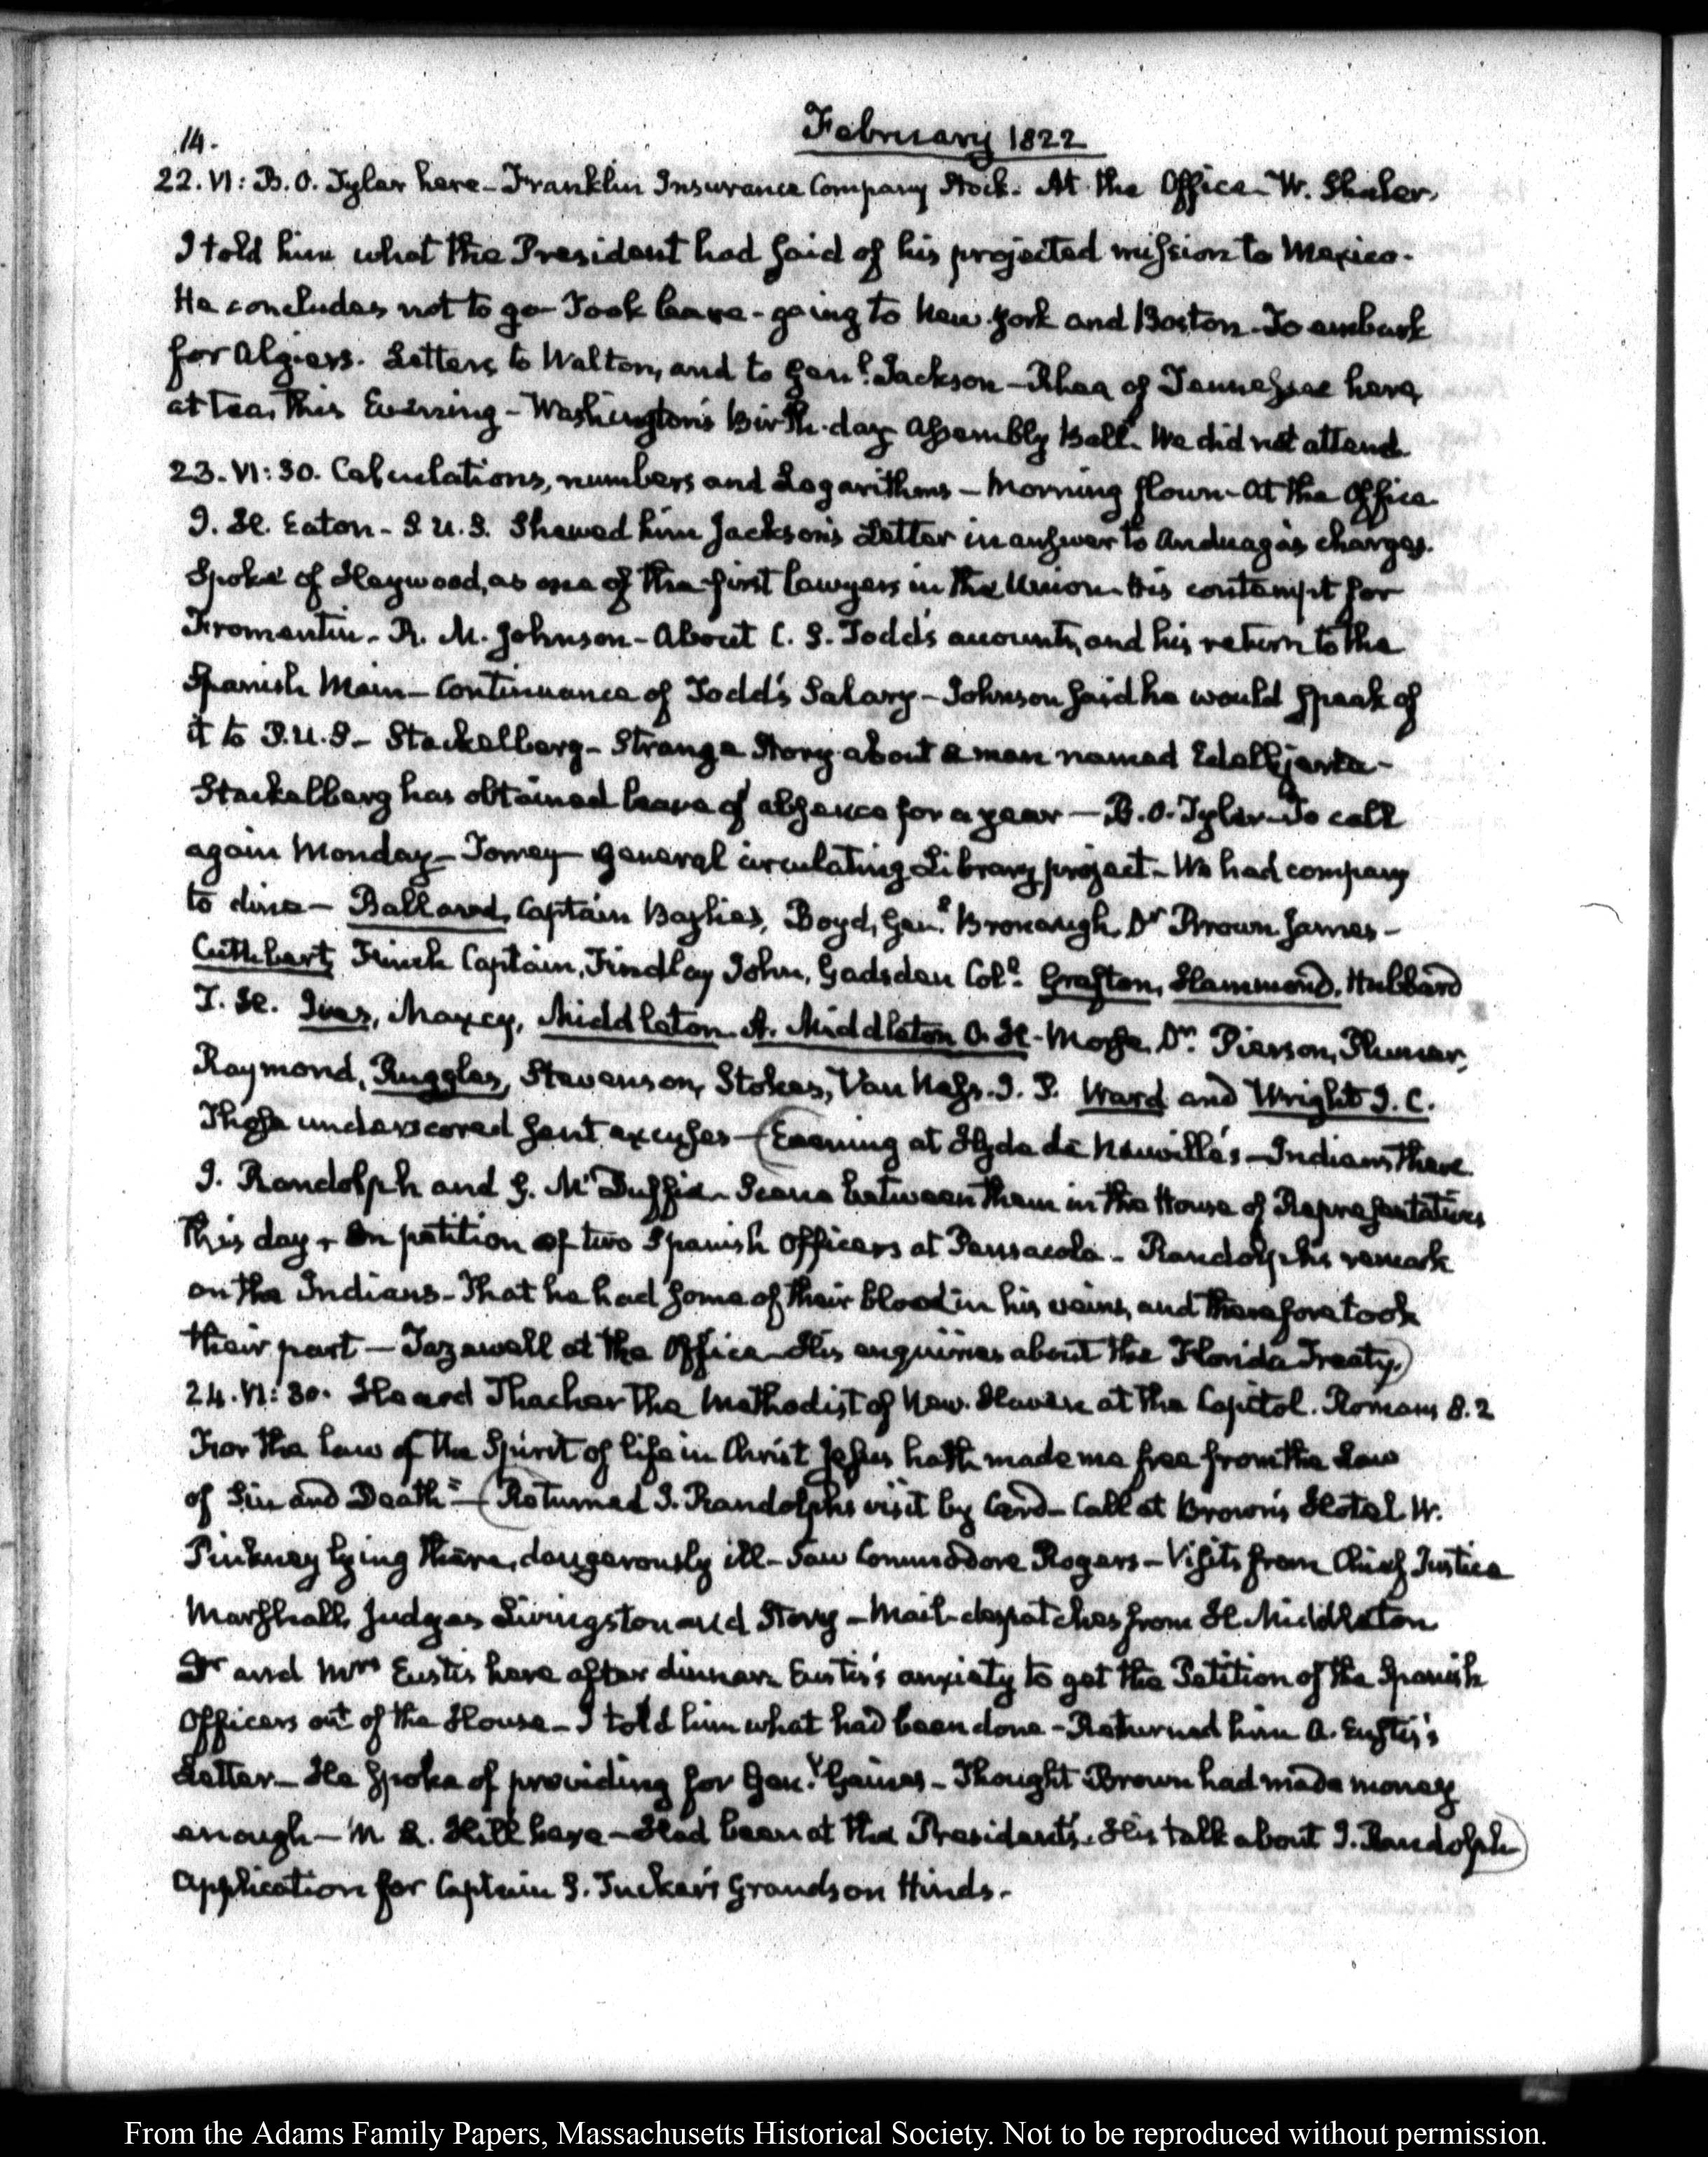 14.
February 1822
22. VI: B. O. Tyler here - Franklin Insurance Company Stock. At the Office - W. Shaler.
I told him what the President had said of his projected mission to Mexico.
He concludes not to go - Took leave - going to New York and Boston - To embark
for Algiers. Letters to Walton, and to Genl. Jackson - Rhea of Tennessee here,
at tea, this Evening - Washington's Birth-day Assembly Ball. We did not attend.
23. VI: 30. Calculations, numbers and Logarithms - Morning flown - At the Office
J. H. Eaton - S. U. S. Shewed him Jackson's Letter in answer to Anduaga's charges.
Spoke of Haywood, as one of the first lawyers in the Union. His contempt for
Fromentin - R. M. Johnson - About C. S. Todd's accounts, and his return to the
Spanish Main - Continuance of Todd's Salary - Johnson said he would speak of
it to P. U. S - Stackelberg - Strange Story about a man named
Stackelberg has obtained leave of absence for a year - B. O. Tyler - To call
again Monday - Torrey - General circulating Library project - We had company
to dine - Ballard, Captain Baylies, Boyd, Genl. Bronaugh, Dr Brown James -
Cuthbert, Finch Captain, Findlay John, Gadsden Coll. Grafton, Hammond, Hubbard
T. H. Ives, Maxcy, Middleton A. Middleton O. H - Morse, Dr. Pierson, Plumer,
Raymond, Ruggles, Stevenson, Stokes, Van Ness. J. P. Ward and Wright J. C.
Those underscored sent excuses - (Evening at Hyde de Neuville's - Indians there
J. Randolph and G. McDuffie - Scene between them in the House of Representatives
this day - On petition of two Spanish Officers at Pensacola - Randolph's remark
on the Indians - That he had some of their blood in his veins, and therefore took
their part - Tazewell at the Office - His enquiries about the Florida Treaty.)
24. VI: 30. Heard Thacher the Methodist of New-Haven at the Capitol. Romans 8. 2
For the Law of the Spirit of life in Christ Jesus hath made me free from the Law
of Sin and Death" - (Returned J. Randolph's visit by Card - Call at Brown's Hotel W.
Pinkney lying there, dangerously ill - Saw Commodore Rogers - Visits from Chief Justice
Marshall, Judges Livingston and Story - Mail - despatches from H. Middleton
Dr and Mrs Eustis here after dinner. Eustis's anxiety to get the Petition of the Spanish
Officers out of the House - I told him what had been done - Returned him A. Eustis's
Letter - He spoke of providing for Genl. Gaines - Thought Brown had made money
enough - M L. Hill here - Had been at the President's. His talk about J. Randolph)
Application for Captain S. Tucker's Grandson Hinds.
From the Adams Family Papers, Massachusetts Historical Society. Not to be reproduced without permission.